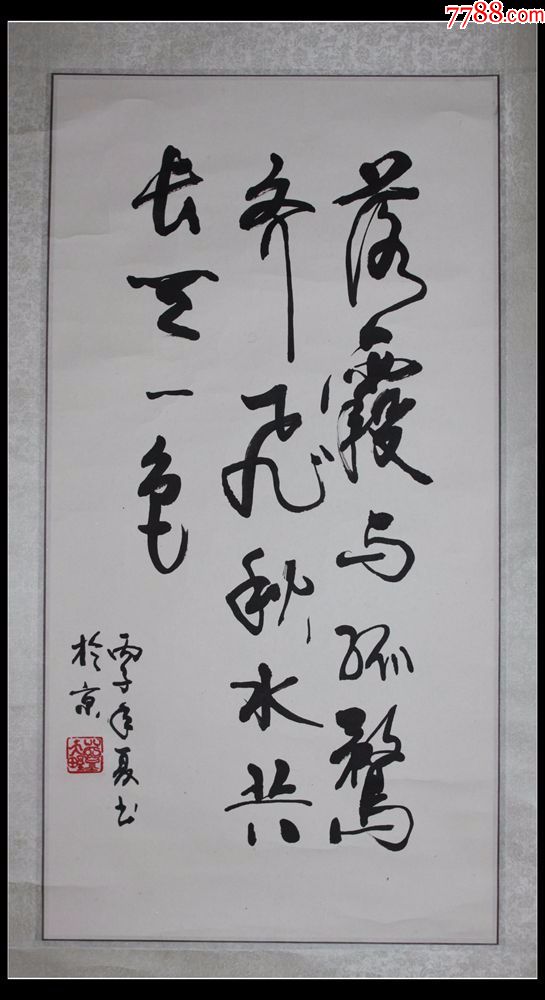 落霞与孤鹜
齐飞秋水共
长天一色
丙子年夏书
於京
7788.com